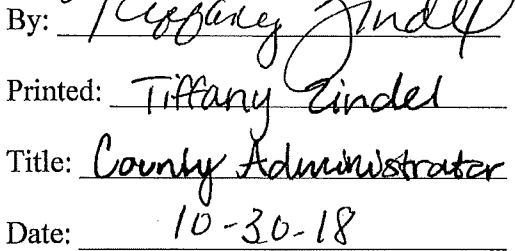 By: Tiffany Zindel
Printed: Tiffany Zindel
Title: County Administrator
Date: 10-30-18